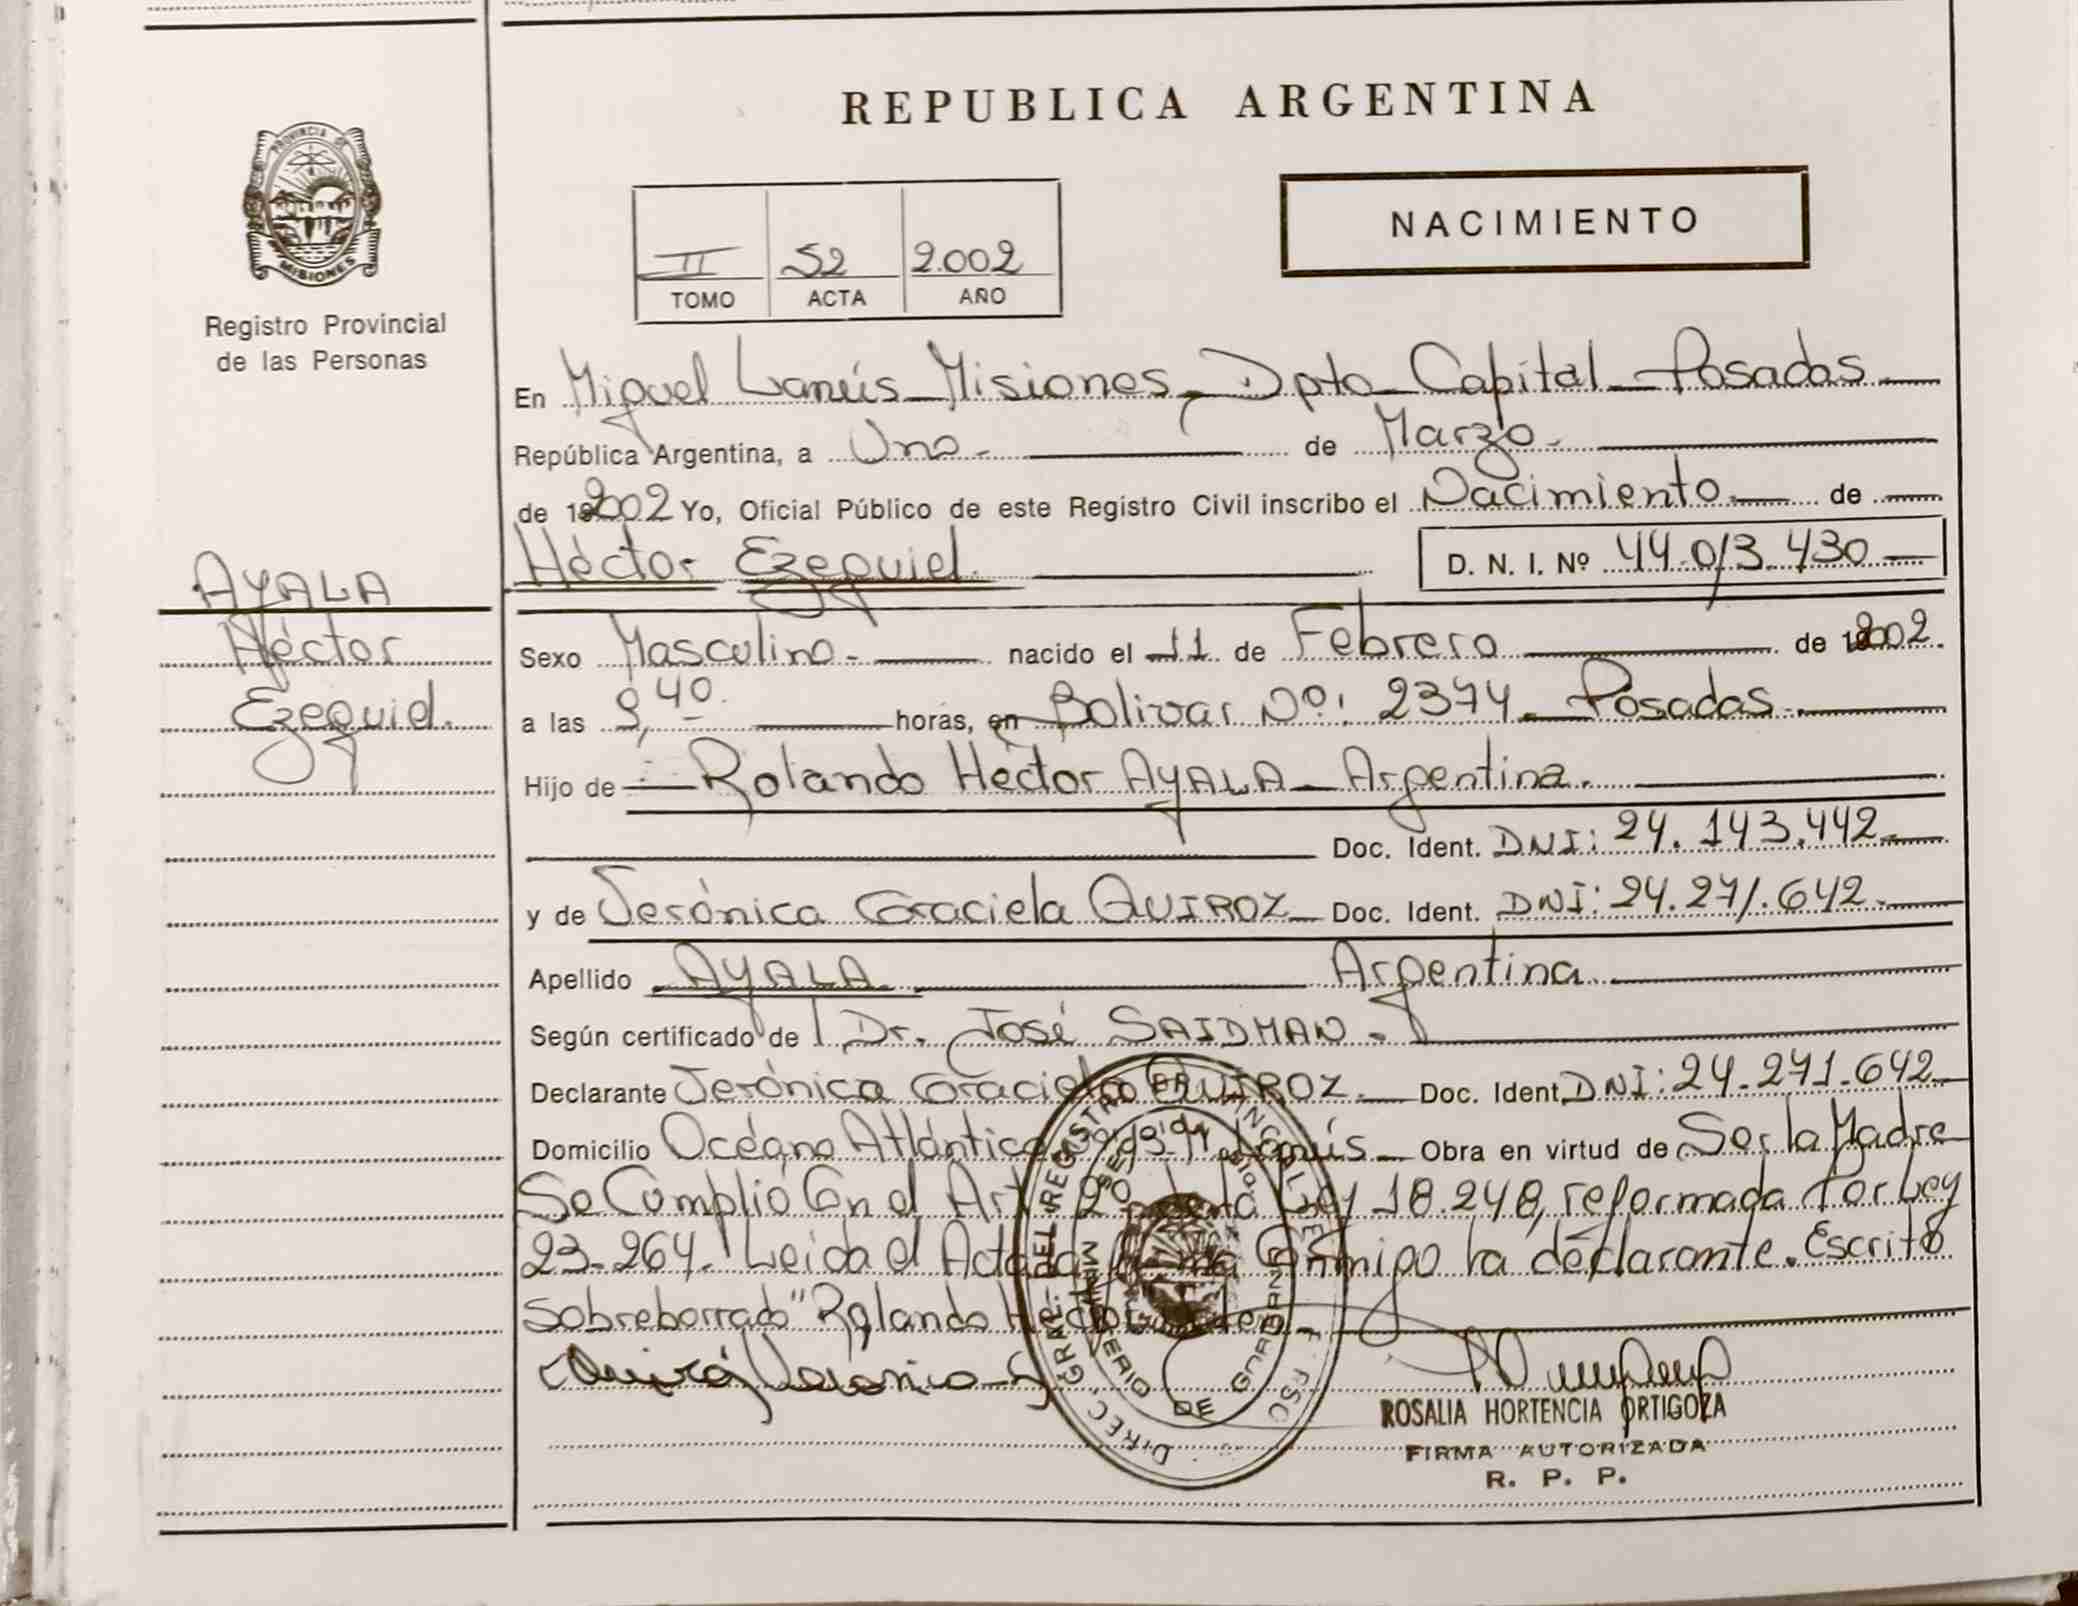 REPUBLICA ARGENTINA
PROVINCIA DE
MISIONES
Registro Provincial
de las Personas
NACIMIENTO
II 52 2.002
TOMO ACTA AÑO
En Miguel Lanús - Misiones, Dpto Capital - Posadas
República Argentina, a Uno - de Marzo -
de 2002 Yo, Oficial Público de este Registro Civil inscribo el Nacimiento de
Héctor Ezequiel D. N. I. Nº 44.013.430
AYALA
Héctor
Ezequiel.
Sexo Masculino - nacido el 11 de Febrero de 2002.
a las 9,40. horas, en Bolivar Nº: 2374 - Posadas
Hijo de Rolando Héctor AYALA - Argentina.
Doc. Ident. DNI: 24.143.442
y de Verónica Graciela QUIROZ Doc. Ident. DNI: 24.271.642.
Apellido AYALA Argentina
Según certificado de Dr. José SAIDMAN -
Declarante Verónica Graciela QUIROZ. Doc. Ident. DNI: 24.271.642
Domicilio Océano Atlántico Lanús Obra en virtud de Ser la Madre
Se Cumplió Con el Art 2º de la Ley 18.248, reformada Por Ley
23.264. Leida el Acta la firma Conmigo la declarante. Escrito
Sobreborrado "Rolando Hector
DIREC. GRAL. DEL REGISTRO PROVINCIAL DE LAS PERSONAS
MINISTERIO DE GOBIERNO
ROSALIA HORTENCIA ORTIGOZA
FIRMA AUTORIZADA
R. P. P.